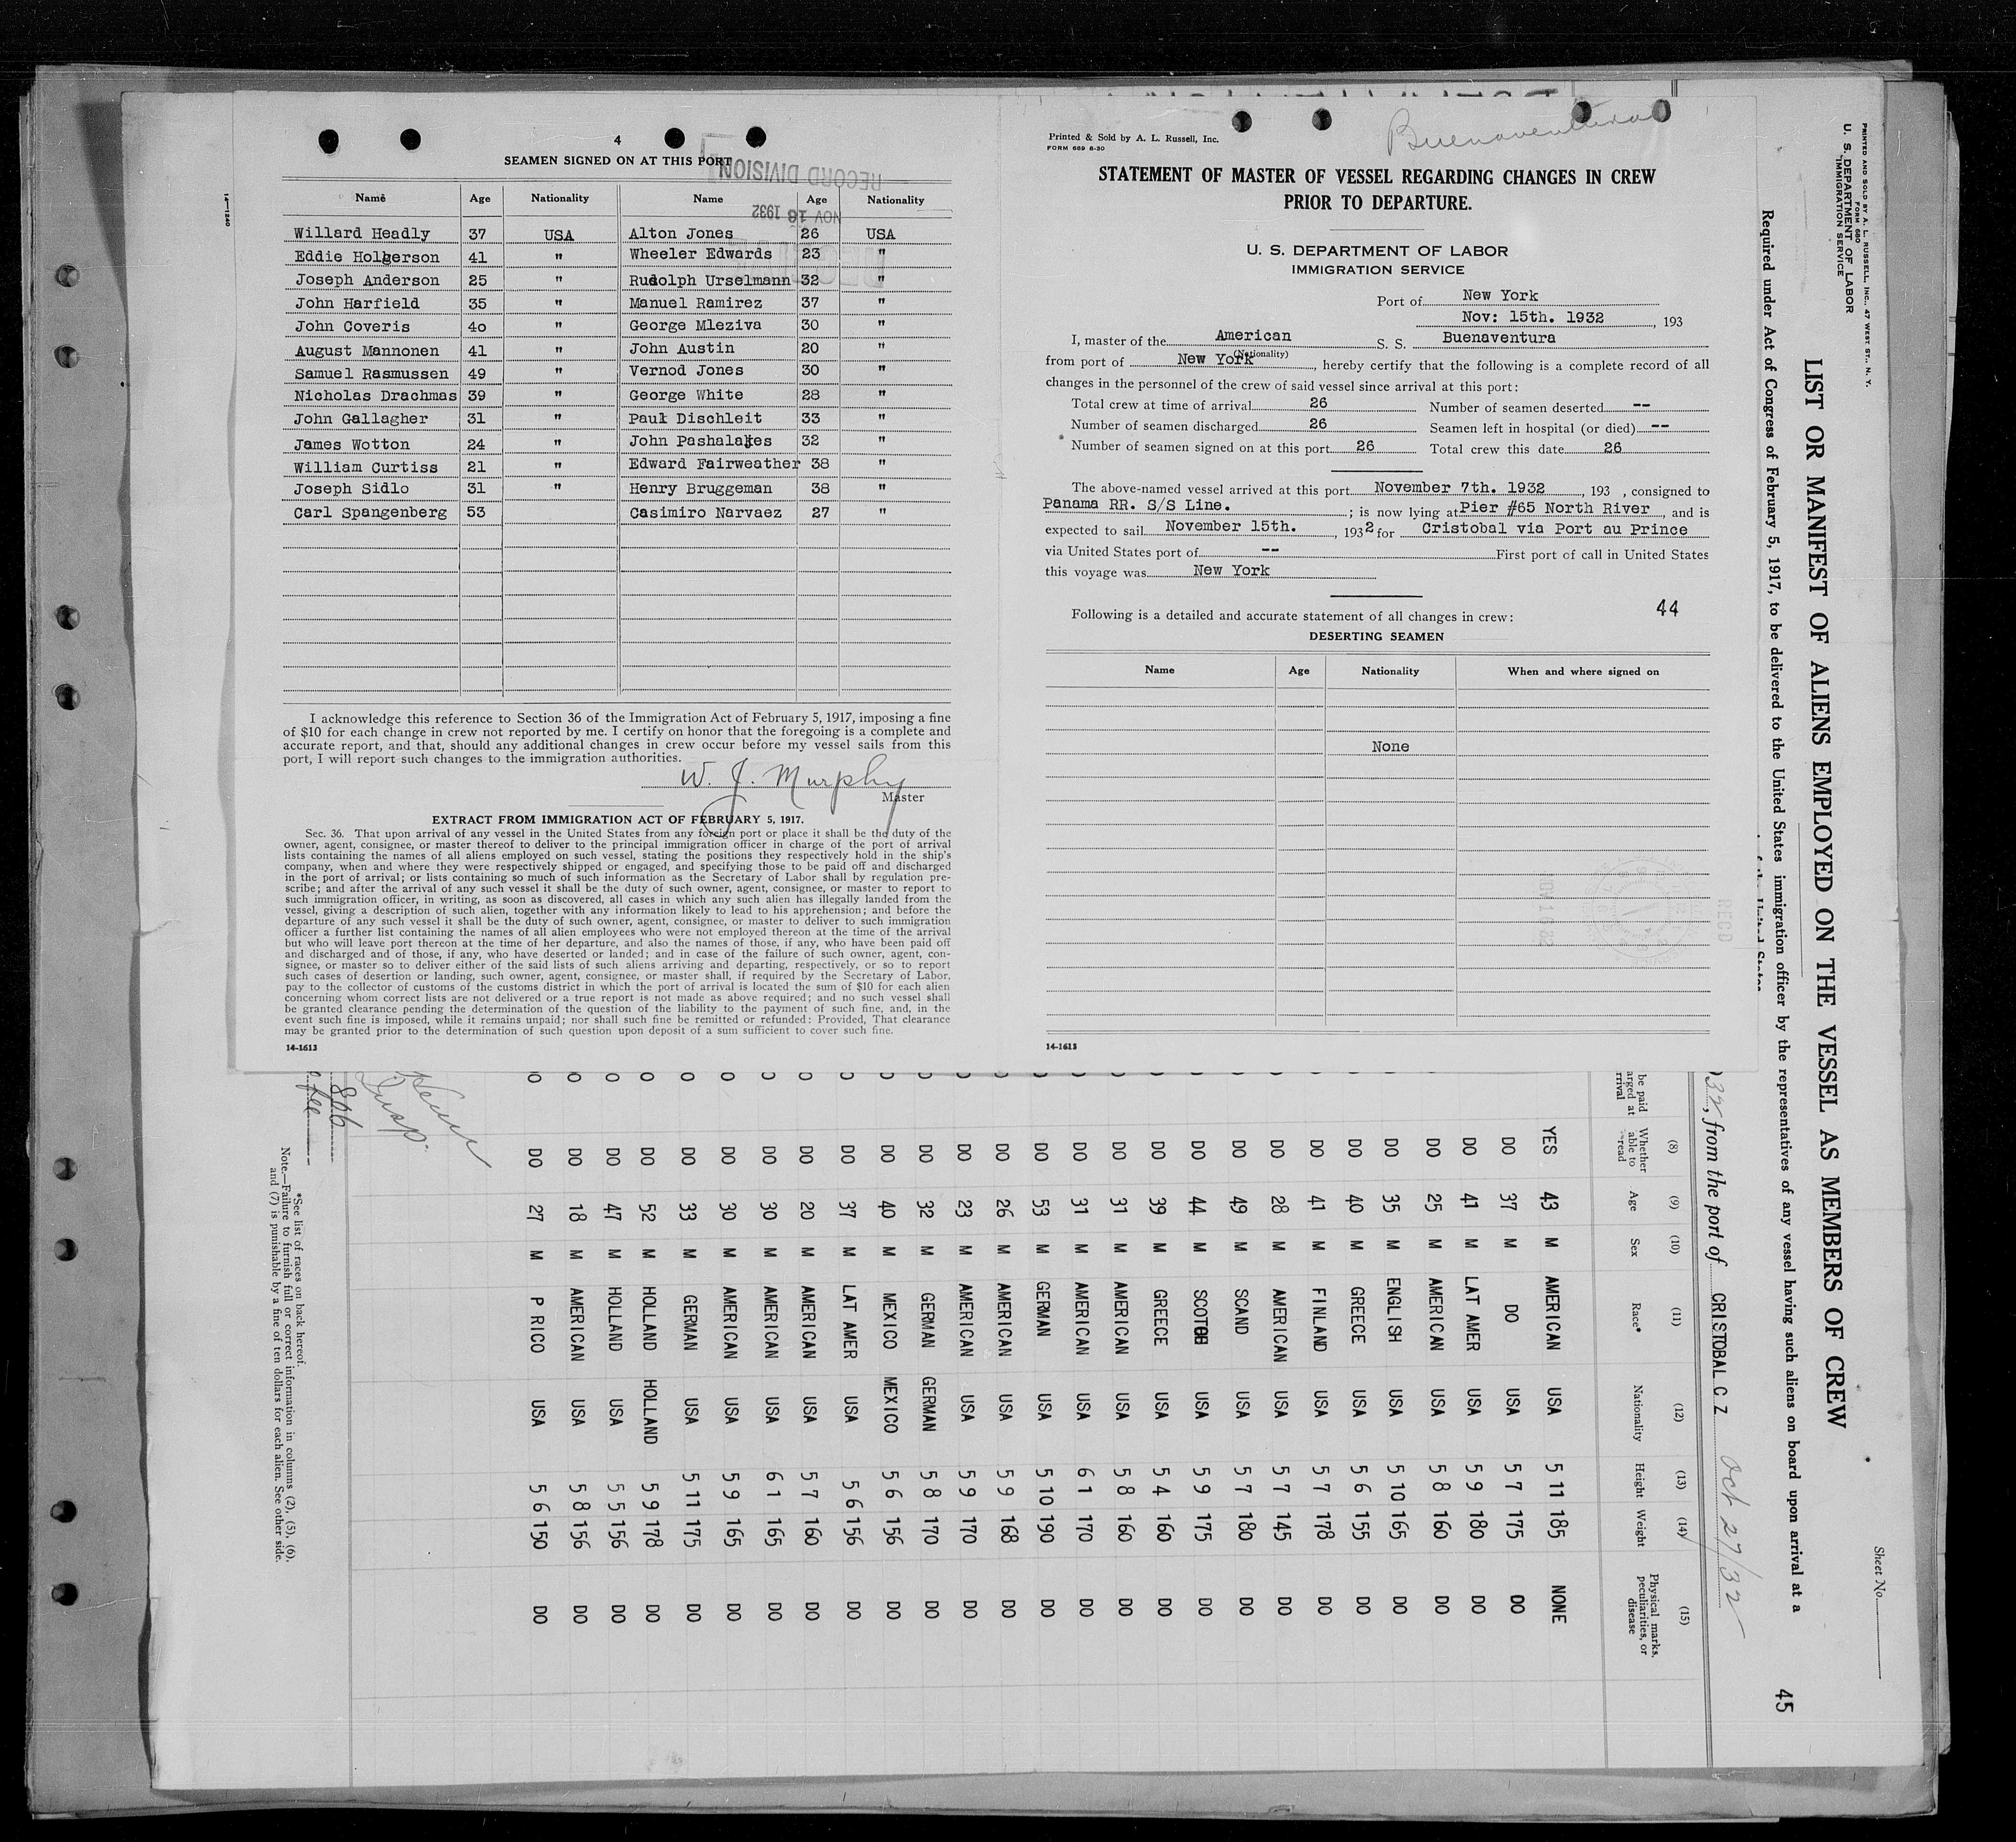 4
SEAMEN SIGNED ON AT THIS PORT
RECORD DIVISION
NOV 16 1932
Name Age Nationality Name Age Nationality
Willard Headly 37 USA Alton Jones 26 USA
Eddie Holgerson 41 " Wheeler Edwards 23 "
Joseph Anderson 25 " Rudolph Urselmann 32 "
John Harfield 35 " Manuel Ramirez 37 "
John Coveris 4o " George Mleziva 30 "
August Mannonen 41 " John Austin 20 "
Samuel Rasmussen 49 " Vernod Jones 30 "
Nicholas Drachmas 39 " George White 28 "
John Gallagher 31 " Paul Dischleit 33 "
James Wotton 24 " John Pashalakes 32 "
William Curtiss 21 " Edward Fairweather 38 "
Joseph Sidlo 31 " Henry Bruggeman 38 "
Carl Spangenberg 53 Casimiro Narvaez 27 "
I acknowledge this reference to Section 36 of the Immigration Act of February 5, 1917, imposing a fine
of $10 for each change in crew not reported by me. I certify on honor that the foregoing is a complete and
accurate report, and that, should any additional changes in crew occur before my vessel sails from this
port, I will report such changes to the immigration authorities.
W. J. Murphy
Master
EXTRACT FROM IMMIGRATION ACT OF FEBRUARY 5, 1917.
Sec. 36. That upon arrival of any vessel in the United States from any foreign port or place it shall be the duty of the
owner, agent, consignee, or master thereof to deliver to the principal immigration officer in charge of the port of arrival
lists containing the names of all aliens employed on such vessel, stating the positions they respectively hold in the ship's
company, when and where they were respectively shipped or engaged, and specifying those to be paid off and discharged
in the port of arrival; or lists containing so much of such information as the Secretary of Labor shall by regulation pre-
scribe; and after the arrival of any such vessel it shall be the duty of such owner, agent, consignee, or master to report to
such immigration officer, in writing, as soon as discovered, all cases in which any such alien has illegally landed from the
vessel, giving a description of such alien, together with any information likely to lead to his apprehension; and before the
departure of any such vessel it shall be the duty of such owner, agent, consignee, or master to deliver to such immigration
officer a further list containing the names of all alien employees who were not employed thereon at the time of the arrival
but who will leave port thereon at the time of her departure, and also the names of those, if any, who have been paid off
and discharged and of those, if any, who have deserted or landed; and in case of the failure of such owner, agent, con-
signee, or master so to deliver either of the said lists of such aliens arriving and departing, respectively, or so to report
such cases of desertion or landing, such owner, agent, consignee, or master shall, if required by the Secretary of Labor,
pay to the collector of customs of the customs district in which the port of arrival is located the sum of $10 for each alien
concerning whom correct lists are not delivered or a true report is not made as above required; and no such vessel shall
be granted clearance pending the determination of the question of the liability to the payment of such fine, and, in the
event such fine is imposed, while it remains unpaid; nor shall such fine be remitted or refunded: Provided, That clearance
may be granted prior to the determination of such question upon deposit of a sum sufficient to cover such fine.
14-1613
14-1240
Printed & Sold by A. L. Russell, Inc.
FORM 689 6-30
Buenaventura
STATEMENT OF MASTER OF VESSEL REGARDING CHANGES IN CREW
PRIOR TO DEPARTURE.
U. S. DEPARTMENT OF LABOR
IMMIGRATION SERVICE
Port of New York
Nov: 15th. 1932, 193
I, master of the American S. S. Buenaventura
(Nationality)
from port of New York, hereby certify that the following is a complete record of all
changes in the personnel of the crew of said vessel since arrival at this port:
Total crew at time of arrival 26 Number of seamen deserted --
Number of seamen discharged 26 Seamen left in hospital (or died) --
Number of seamen signed on at this port 26 Total crew this date 26
The above-named vessel arrived at this port November 7th. 1932, 193 , consigned to
Panama RR. S/S Line. ; is now lying at Pier #65 North River, and is
expected to sail November 15th. , 1932 for Cristobal via Port au Prince
via United States port of -- First port of call in United States
this voyage was New York
44
Following is a detailed and accurate statement of all changes in crew:
DESERTING SEAMEN
Name Age Nationality When and where signed on
None
14-1613
PRINTED AND SOLD BY A. L. RUSSELL, INC., 47 WEST ST., N. Y.
FORM 680
U. S. DEPARTMENT OF LABOR
IMMIGRATION SERVICE
Sheet No.
LIST OR MANIFEST OF ALIENS EMPLOYED ON THE VESSEL AS MEMBERS OF CREW
Required under Act of Congress of February 5, 1917, to be delivered to the United States immigration officer by the representatives of any vessel having such aliens on board upon arrival at a
45
32, from the port of CRISTOBAL C Z Oct 27/32
(8) (9) (10) (11) (12) (13) (14) (15)
Whether able to read Age Sex Race* Nationality Height Weight Physical marks, peculiarities, or disease
YES 43 M AMERICAN USA 5 11 185 NONE
DO 37 M DO USA 5 7 175 DO
DO 41 M LAT AMER USA 5 9 180 DO
DO 25 M AMERICAN USA 5 8 160 DO
DO 35 M ENGLISH USA 5 10 165 DO
DO 40 M GREECE USA 5 6 155 DO
DO 41 M FINLAND USA 5 7 178 DO
DO 28 M AMERICAN USA 5 7 145 DO
DO 49 M SCAND USA 5 7 180 DO
DO 44 M SCOTCH USA 5 9 175 DO
DO 39 M GREECE USA 5 4 160 DO
DO 31 M AMERICAN USA 5 8 160 DO
DO 31 M AMERICAN USA 6 1 170 DO
DO 53 M GERMAN USA 5 10 190 DO
DO 26 M AMERICAN USA 5 9 168 DO
DO 23 M AMERICAN USA 5 9 170 DO
DO 32 M GERMAN GERMAN 5 8 170 DO
DO 40 M MEXICO MEXICO 5 6 156 DO
DO 37 M LAT AMER USA 5 6 156 DO
DO 20 M AMERICAN USA 5 7 160 DO
DO 30 M AMERICAN USA 6 1 165 DO
DO 30 M AMERICAN USA 5 9 165 DO
DO 33 M GERMAN USA 5 11 175 DO
DO 52 M HOLLAND HOLLAND 5 9 178 DO
DO 47 M HOLLAND USA 5 5 156 DO
DO 18 M AMERICAN USA 5 8 156 DO
DO 27 M P RICO USA 5 6 150 DO
806
*See list of races on back hereof.
Note.—Failure to furnish full or correct information in columns (2), (5), (6),
and (7) is punishable by a fine of ten dollars for each alien. See other side.